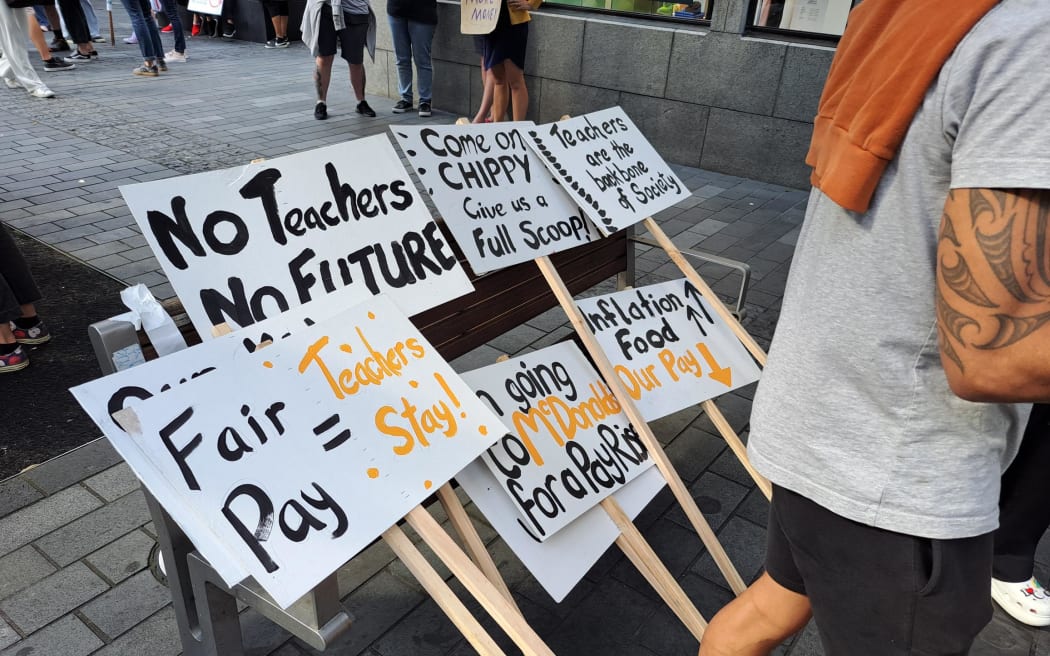 MORE
MORE!
No Teachers
No FUTURE
Come on
CHIPPY
Give us a
Full Scoop!
Teachers
are the
backbone
of Society
Inflation ↑
Food ↑
Our Pay ↓
going
McDonalds
for a Pay
Fair = Teachers
Pay Stay!